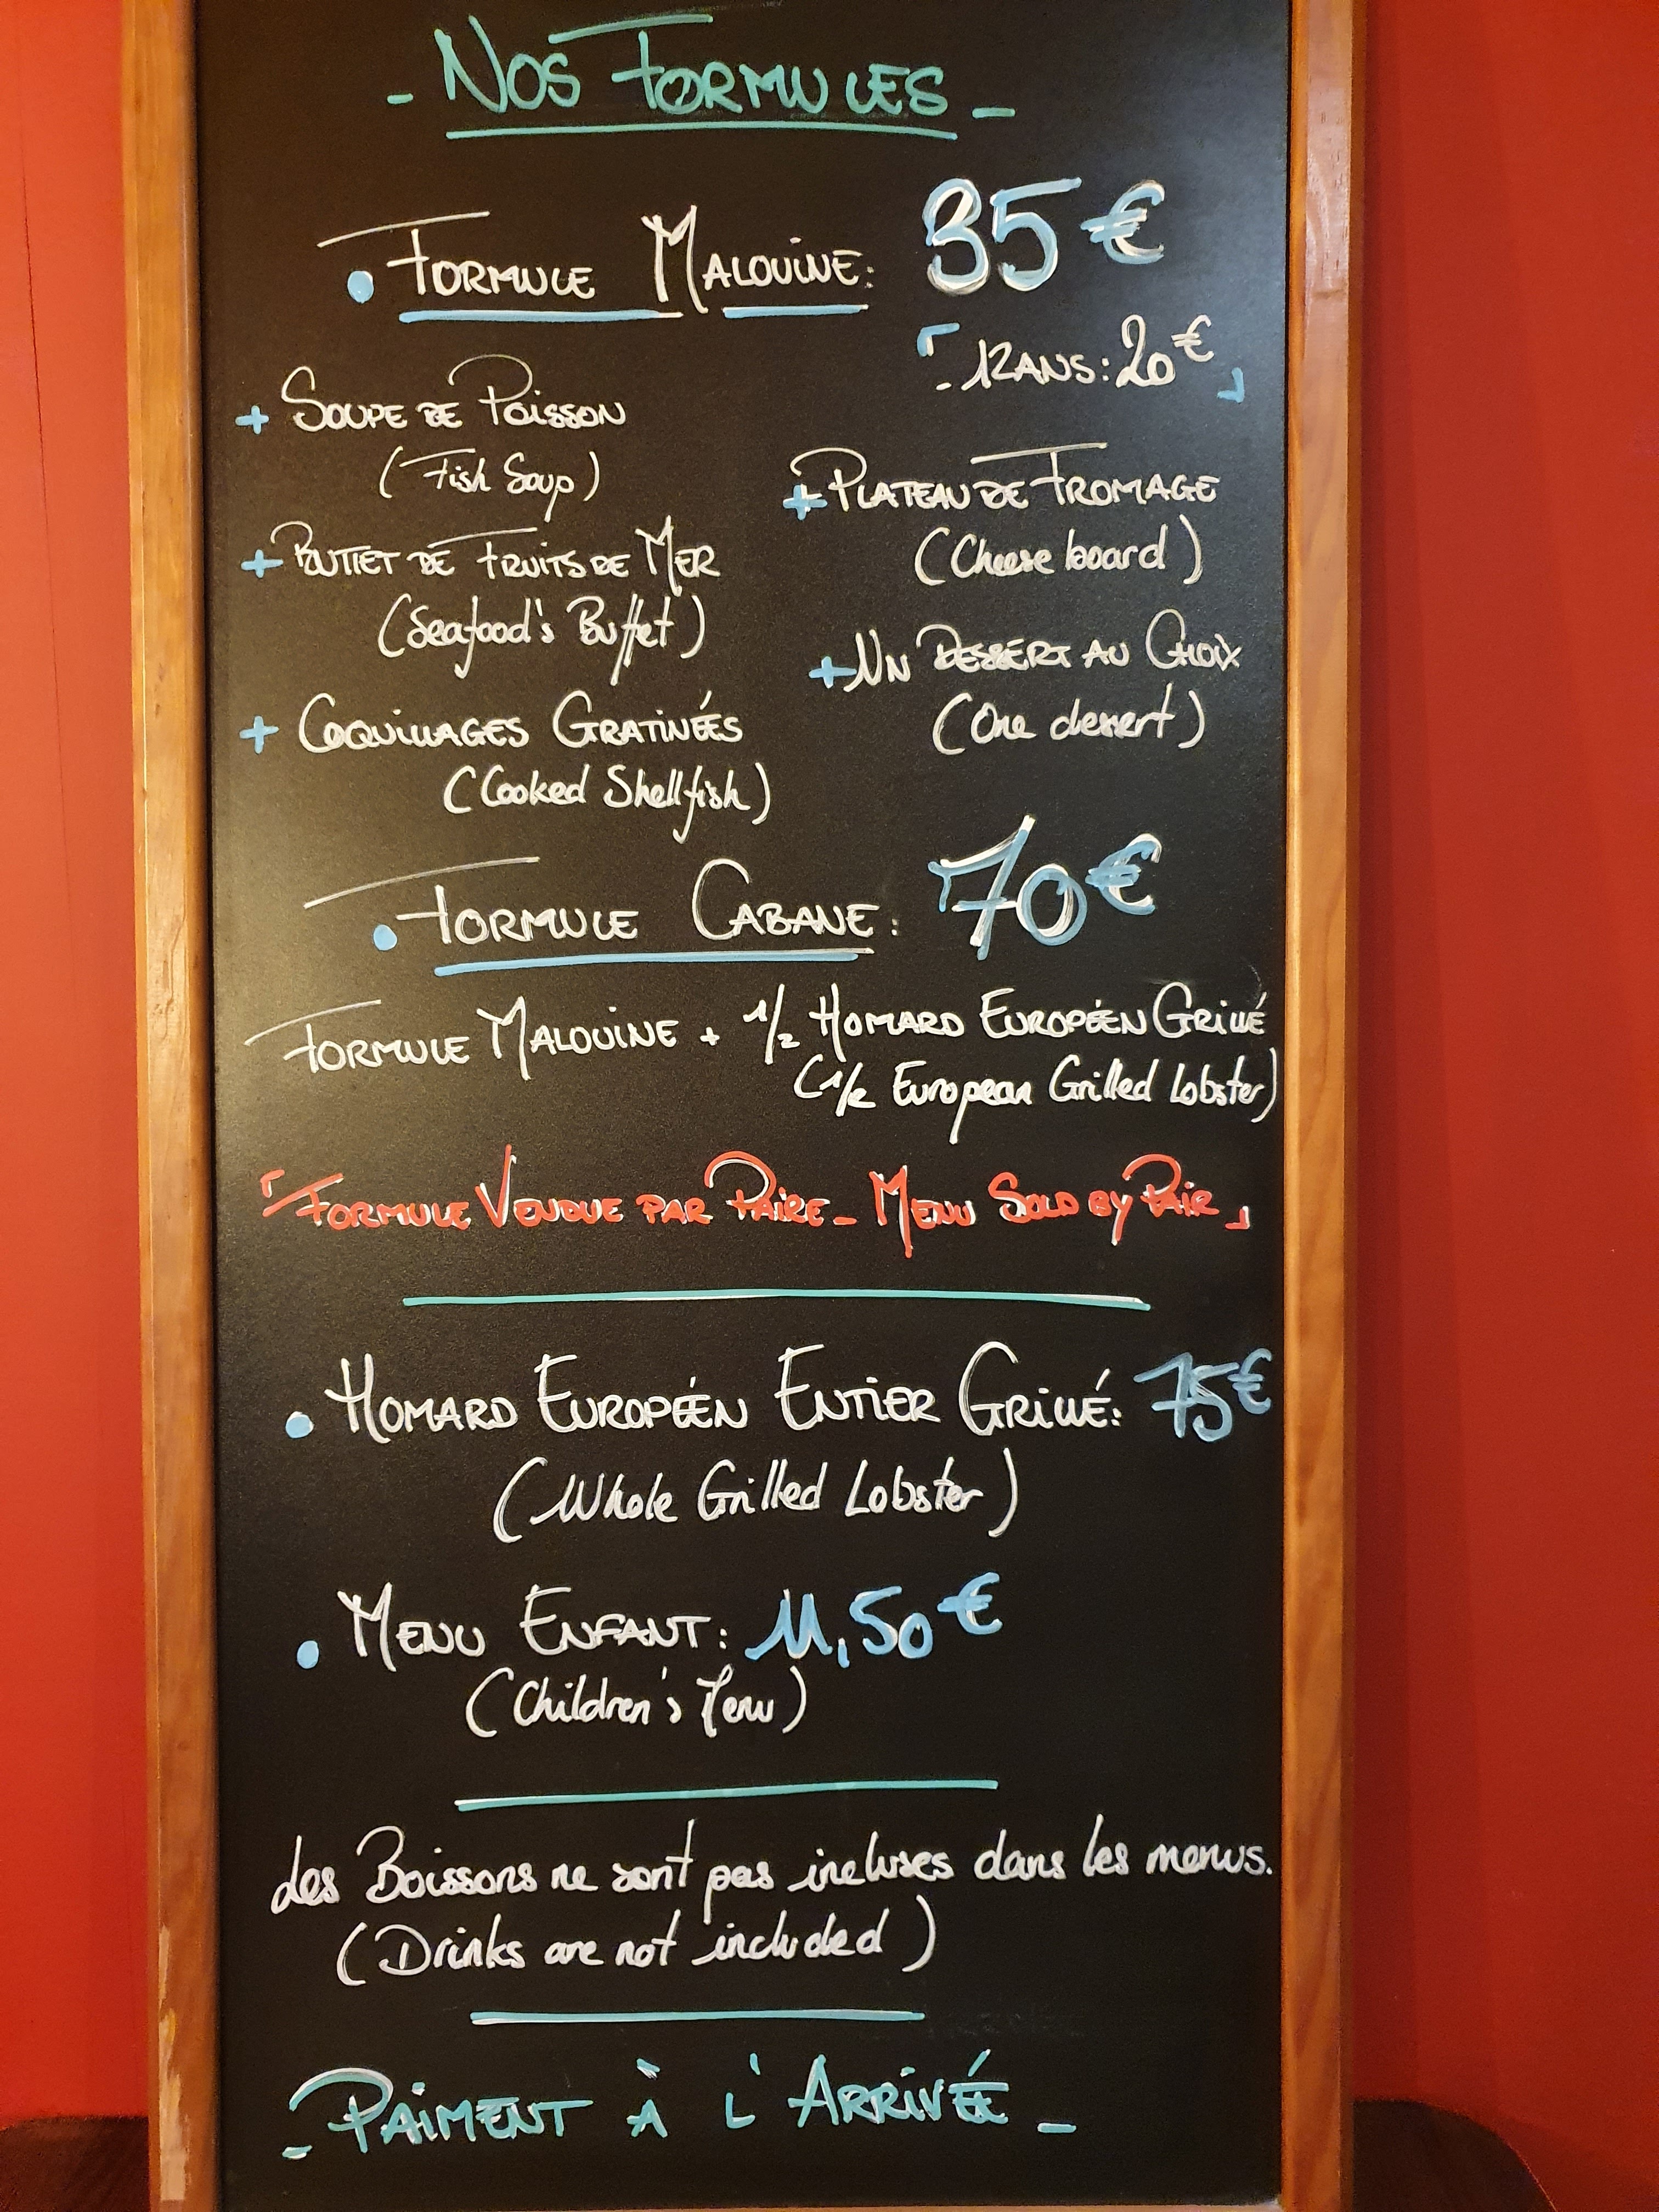 - NOS FORMULES -
• FORMULE MALOUINE: 35€
「- 12ANS: 20€」
+ SOUPE DE POISSON
(Fish Soup)
+ BUFFET DE FRUITS DE MER
(Seafood's Buffet)
+ COQUILLAGES GRATINÉS
(Cooked Shellfish)
+ PLATEAU DE FROMAGE
(Cheese board)
+ UN DESSERT AU CHOIX
(One dessert)
• FORMULE CABANE: 70€
FORMULE MALOUINE + 1/2 HOMARD EUROPÉEN GRILLÉ
(1/2 European Grilled Lobster)
「FORMULE VENDUE PAR PAIRE - MENU SOLD BY PAIR」
• HOMARD EUROPÉEN ENTIER GRILLÉ: 75€
(Whole Grilled Lobster)
• MENU ENFANT: 11,50€
(Children's Menu)
Les Boissons ne sont pas incluses dans les menus.
(Drinks are not included)
- PAIMENT À L'ARRIVÉE -